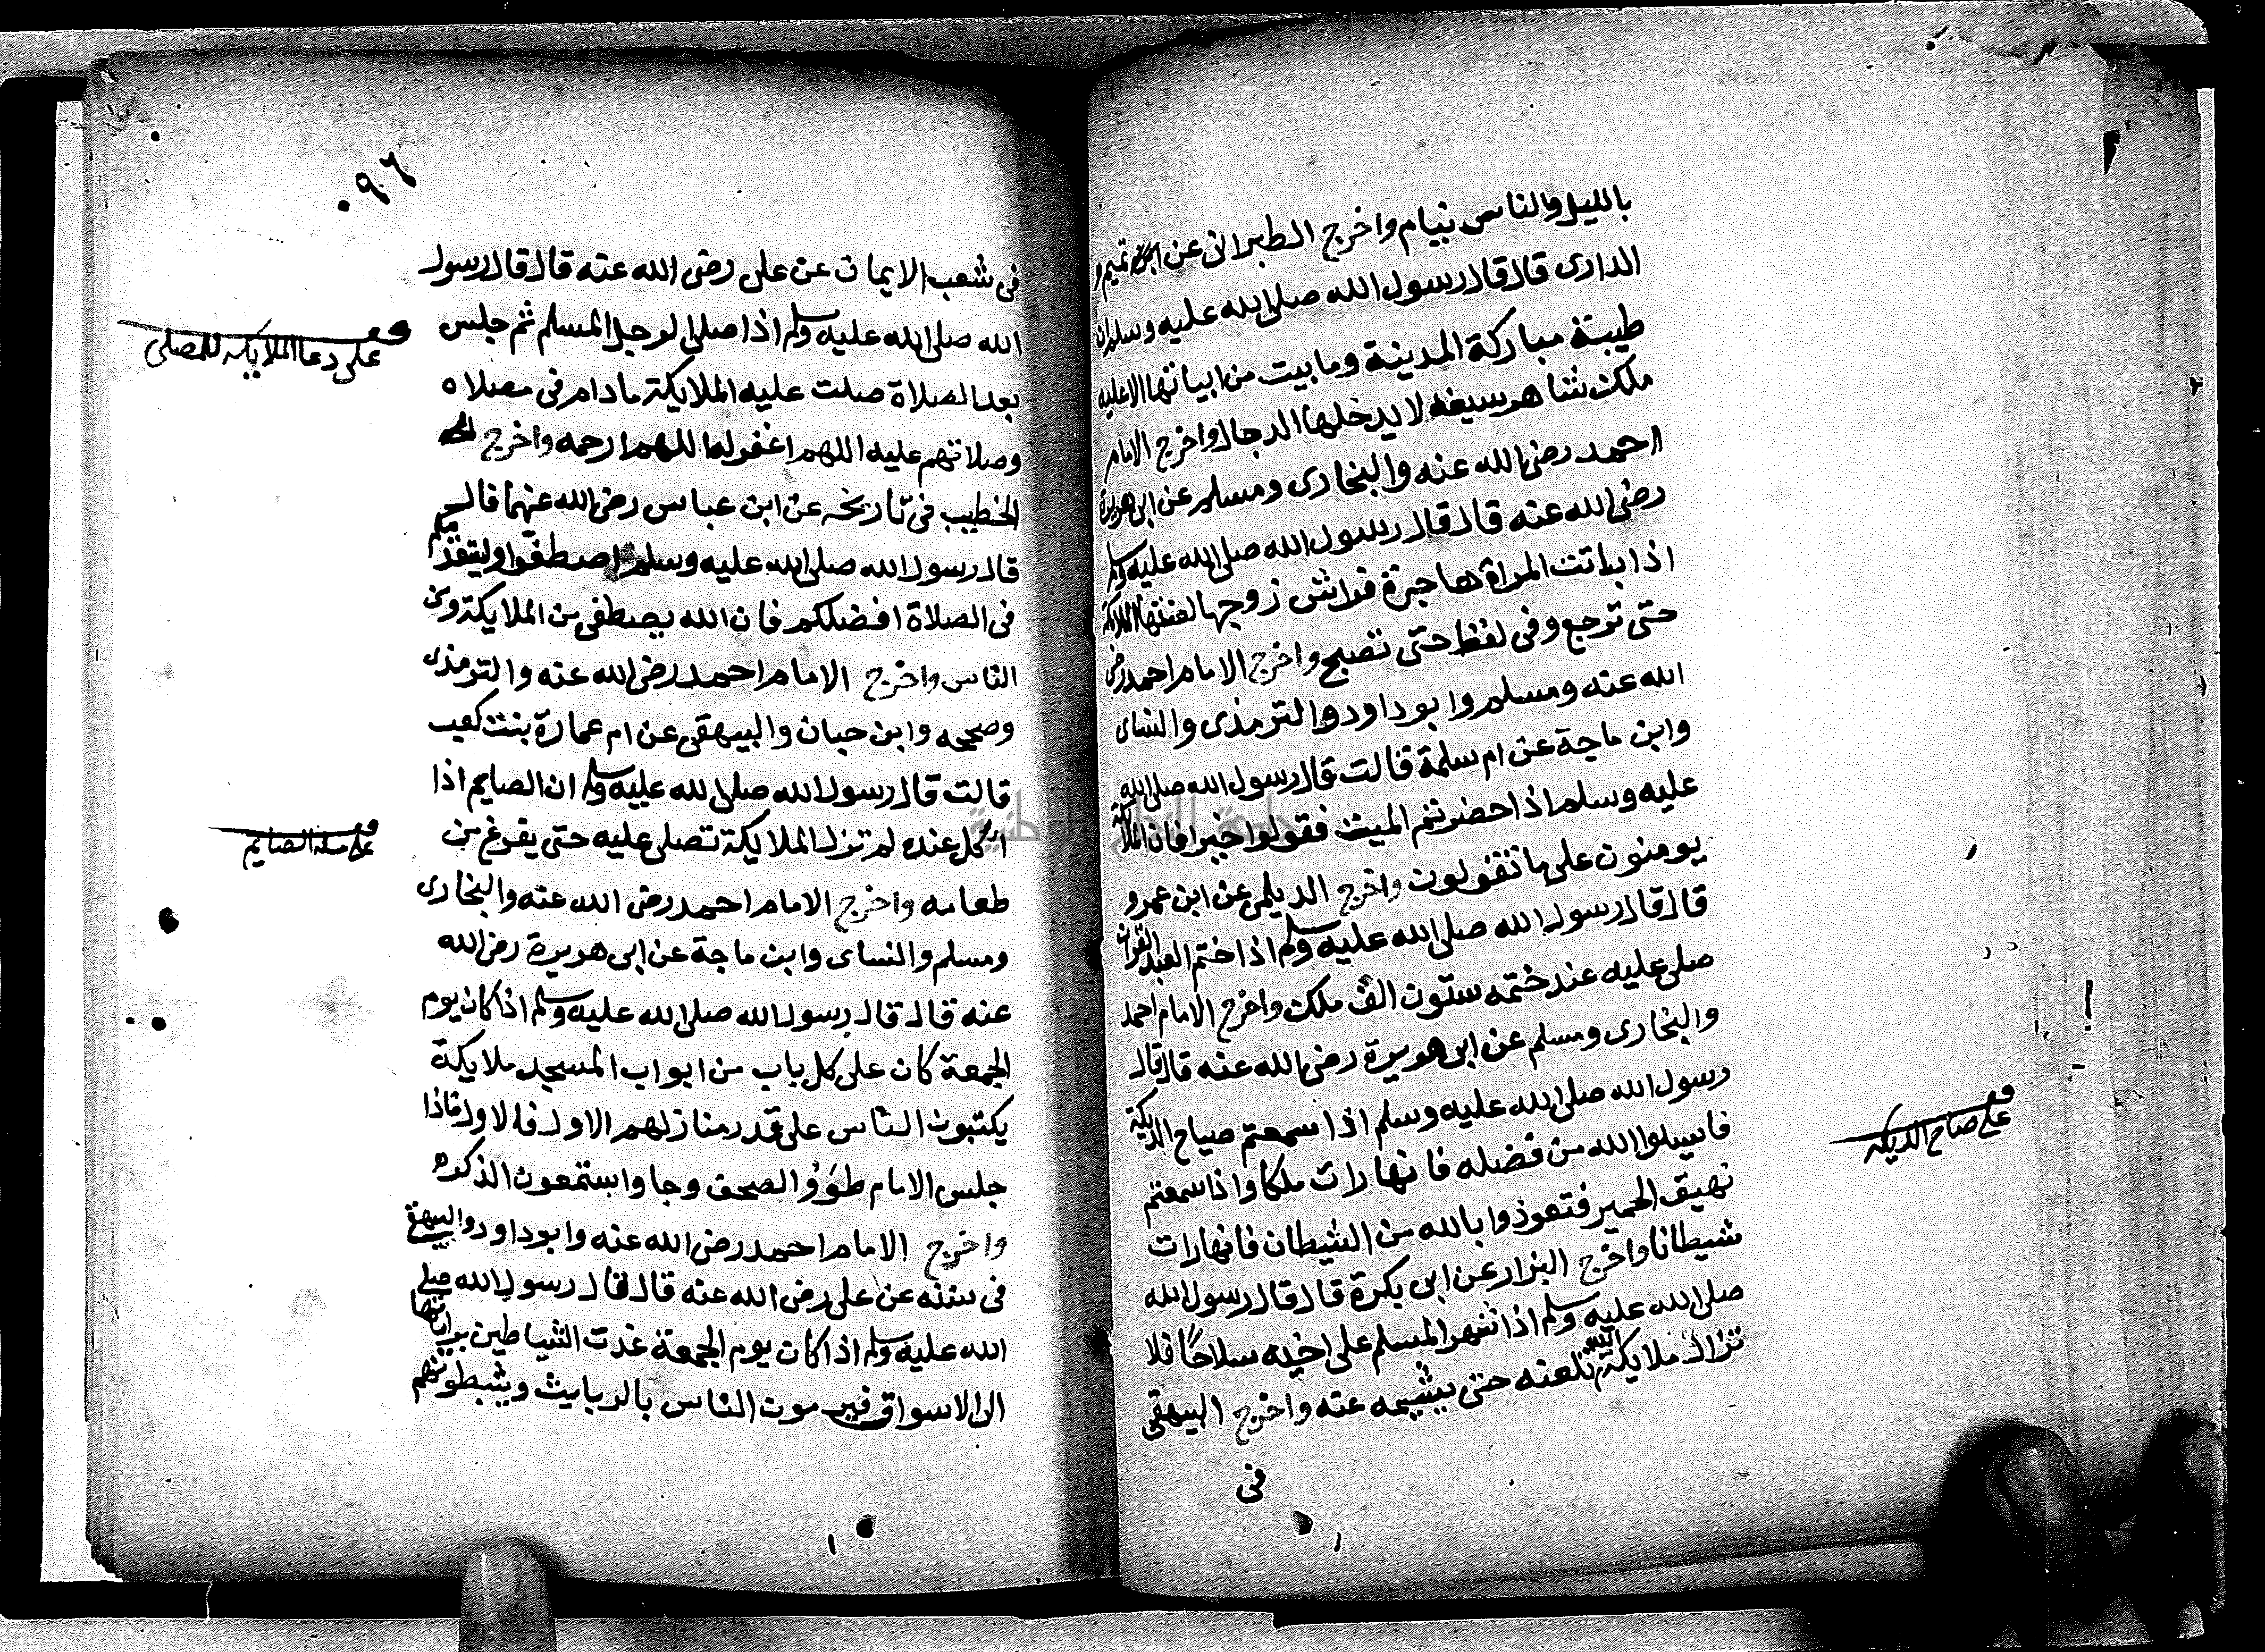 بالليل والناس نيام واخرج الطبرانى عن تميم
الدارى قال قال رسول الله صلى الله عليه وسلم ان
طيبة مباركة المدينة وما بيت من ابياتها الا عليه
ملك شاهر سيفه لا يدخلها الدجال واخرج الامام
احمد رضى الله عنه والبخارى ومسلم عن ابى هريرة
رضى الله عنه قال قال رسول الله صلى الله عليه وسلم
اذا باتت المراة هاجرة فراش زوجها لعنتها الملايكة
حتى ترجع وفى لفظ حتى تصبح واخرج الامام احمد رضى
الله عنه ومسلم وابو داود والترمذى والنساى
وابن ماجة عن ام سلمة قالت قال رسول الله صلى الله
عليه وسلم اذا حضرتم الميت فقولوا خيرا فان الملايكة
يومنون على ما تقولون واخرج الديلمى عن ابن عمرو
قال قال رسول الله صلى الله عليه وسلم اذا ختم العبد القران
صلى عليه عند ختمه ستون الف ملك واخرج الامام احمد
والبخارى ومسلم عن ابى هريرة رضى الله عنه قال قال
رسول الله صلى الله عليه وسلم اذا سمعتم صياح الديكة
فاسيلوا الله من فضله فانها رات ملكا واذا سمعتم
نهيق الحمير فتعوذوا بالله من الشيطان فانها رات
شيطانا واخرج البزار عن ابى بكرة قال قال رسول الله
صلى الله عليه وسلم اذا شهر المسلم على اخيه سلاحا فلا
تزال ملايكة الله تلعنه حتى يشيمه عنه واخرج البيهقى
فى
على صياح الديكه
٠٩٦
فى شعب الايمان عن على رضى الله عنه قال قال رسول
الله صلى الله عليه وسلم اذا صلى الرجل المسلم ثم جلس
بعد الصلاة صلت عليه الملايكة ما دام فى مصلاه
وصلاتهم عليه اللهم اغفر له اللهم ارحمه واخرج
الخطيب فى تاريخه عن ابن عباس رضى الله عنهما قال
قال رسول الله صلى الله عليه وسلم اصطفوا وليتقدمكم
فى الصلاة افضلكم فان الله يصطفى من الملايكة ومن
الناس واخرج الامام احمد رضى الله عنه والترمذى
وصححه وابن حبان والبيهقى عن ام عمارة بنت كعب
قالت قال رسول الله صلى الله عليه وسلم ان الصايم اذا
اكل عنده لم تزل الملايكة تصلى عليه حتى يفرغ من
طعامه واخرج الامام احمد رضى الله عنه والبخارى
ومسلم والنساى وابن ماجة عن ابى هريرة رضى الله
عنه قال قال رسول الله صلى الله عليه وسلم اذا كان يوم
الجمعة كان على كل باب من ابواب المسجد ملايكة
يكتبون الناس على قدر منازلهم الاول فالاول فاذا
جلس الامام طووا الصحف وجاوا يستمعون الذكر
واخرج الامام احمد رضى الله عنه وابو داود والبيهقى
فى سننه عن على رضى الله عنه قال قال رسول الله صلى
الله عليه وسلم اذا كان يوم الجمعة غدت الشياطين براياتها
الى الاسواق فيرموت الناس بالربايث ويثبطونهم
على دعا الملايكه للمصلى
على الصايم